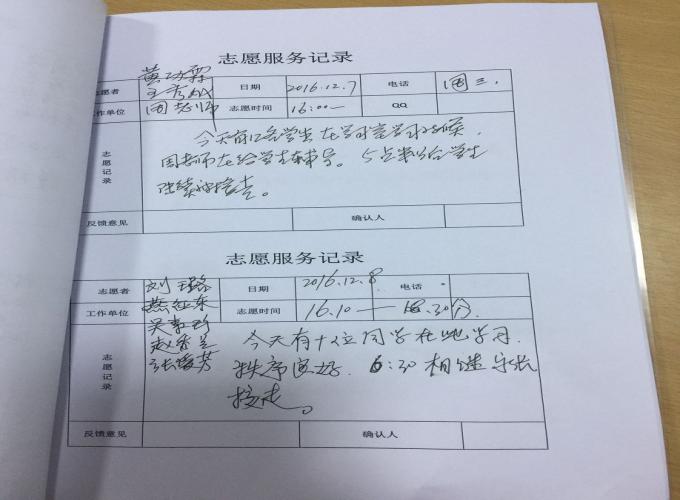 志愿服务记录
志愿者 日期 2016.12.7 电话 周三.
工作单位 周老师 志愿时间 16:00— QQ
志愿记录
今天有12名学生在学习室学习
周老师在给学生辅导。5点半以后学生
陆续被接走。
反馈意见 确认人
志愿服务记录
志愿者 刘 日期 2016.12.8 电话
工作单位 燕征东 志愿时间 16.10—18.30分
吴
赵秀兰
张俊芳
志愿记录
今天有十位同学在此学习.
秩序良好. 6:30相继家长
接走。
反馈意见 确认人